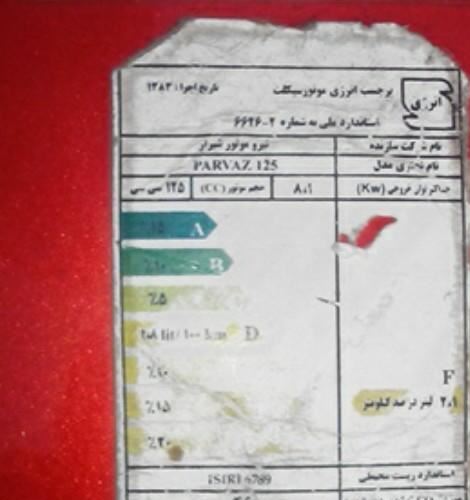 انرژی
برچسب انرژی موتورسیکلت
تاریخ اجرا: ۱۳۸۳
استاندارد ملی به شماره ۲-۶۶۲۶
نام شرکت سازنده نیرو موتور شیراز
نام تجاری مدل PARVAZ 125
حداکثر توان خروجی (Kw) ۸٫۱ حجم موتور (CC) ۱۲۵ سی سی
A
٪۱۰ B
٪۵
lit/۱۰۰ km D
٪۱۰
٪۱۵
٪۲۰
F
۲٫۱ لیتر در صد کیلومتر
استاندارد زیست محیطی ISIRI 6789